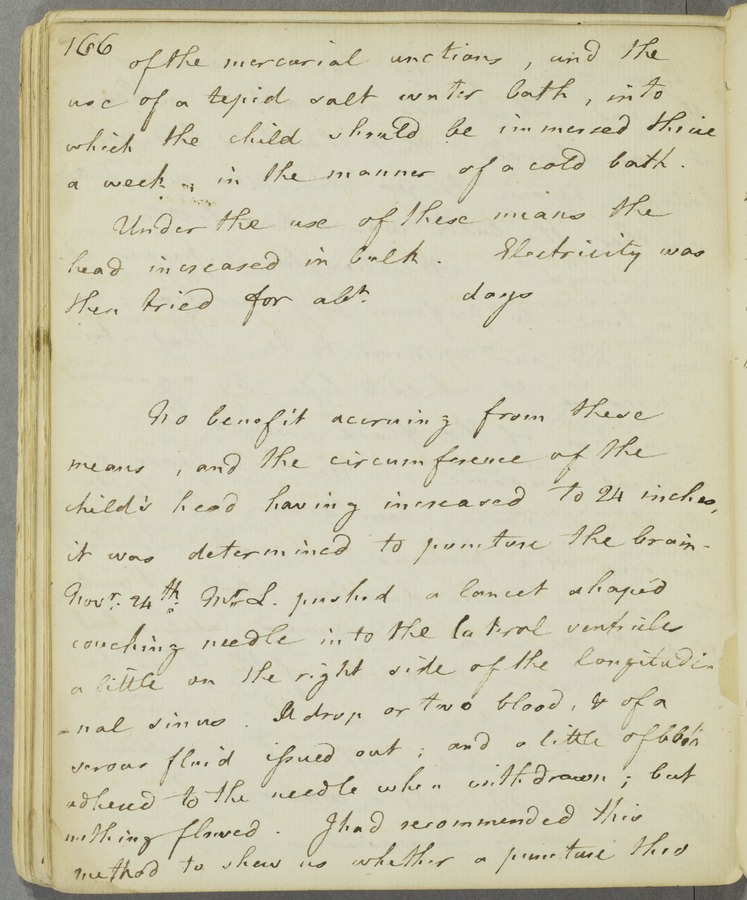 166
of the mercurial unctions, and the
use of a tepid salt water bath, into
which the child should be immersed thrice
a week, in the manner of a cold bath.
Under the use of these means the
head increased in bulk. Electricity was
then tried for abt. days
No benefit accruing from these
means, and the circumference of the
child's head having increased to 24 inches,
it was determined to puncture the brain.
Novr. 24th. Mr L. pushed a lancet shaped
couching needle into the lateral ventricles
a little on the right side of the longitudi
=nal sinus. A drop or two blood, & of a
serous fluid issued out; and a little of
adhered to the needle when withdrawn; but
nothing flowed. I had recommended this
method to shew us whether a puncture thro